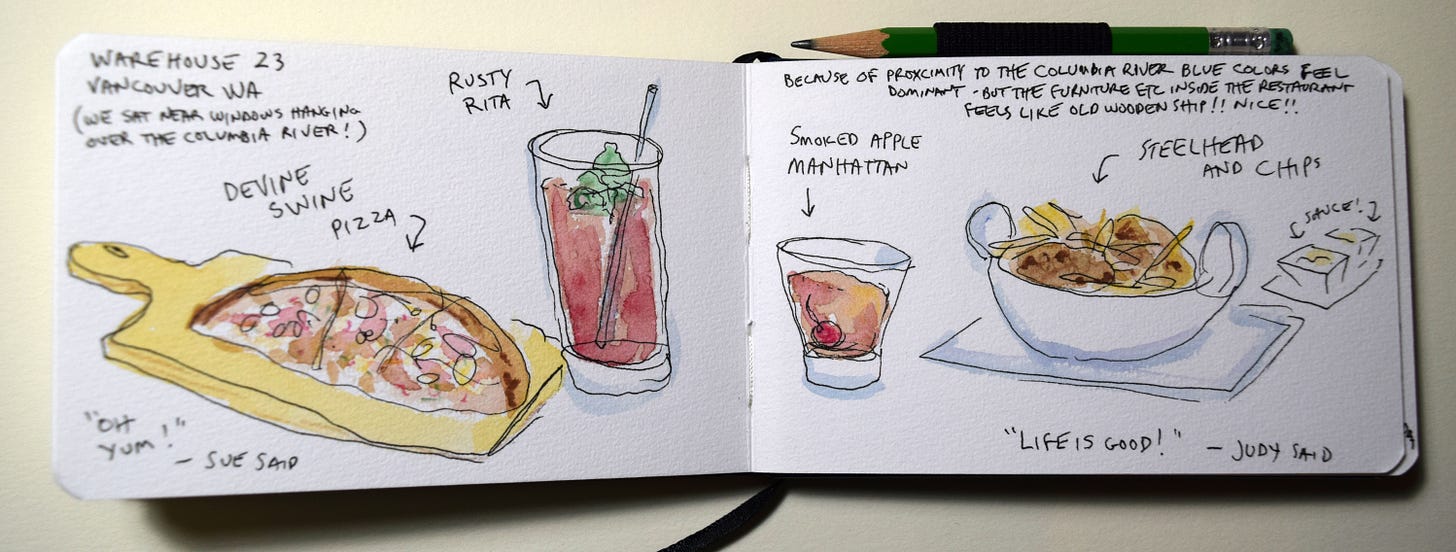 WAREHOUSE 23
VANCOUVER WA
(WE SAT NEAR WINDOWS HANGING
OVER THE COLUMBIA RIVER!)
RUSTY
RITA
DEVINE
SWINE
PIZZA
"OH
YUM!"
— SUE SAID
BECAUSE OF PROXCIMITY TO THE COLUMBIA RIVER BLUE COLORS FEEL
DOMINANT - BUT THE FURNITURE ETC INSIDE THE RESTAURANT
FEELS LIKE OLD WOODEN SHIP!! NICE!!
SMOKED APPLE
MANHATTAN
STEELHEAD
AND CHIPS
SAUCE!
"LIFE IS GOOD!" — JUDY SAID